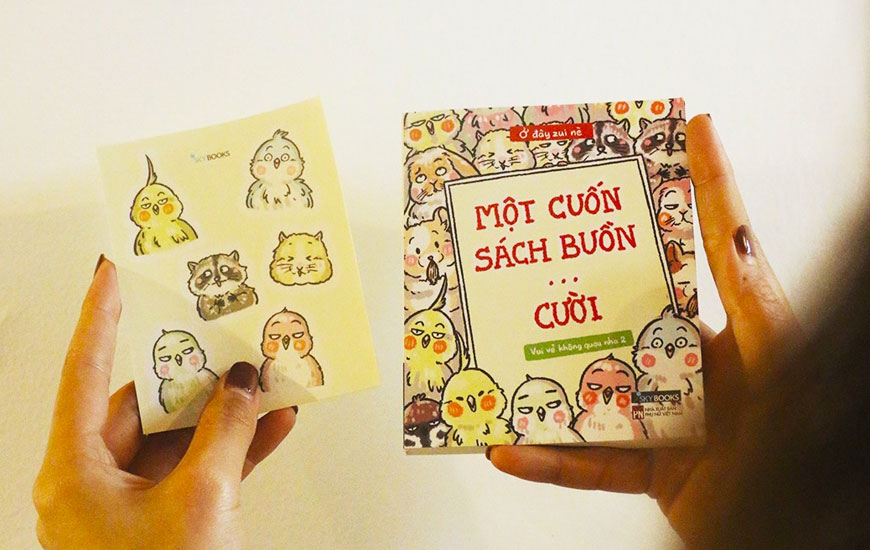 SKYBOOKS
Ở đây zui nè
MỘT CUỐN
SÁCH BUỒN
...
CƯỜI
Vui vẻ không quạu nha 2
SKYBOOKS
PN NHÀ XUẤT BẢN
PHỤ NỮ VIỆT NAM